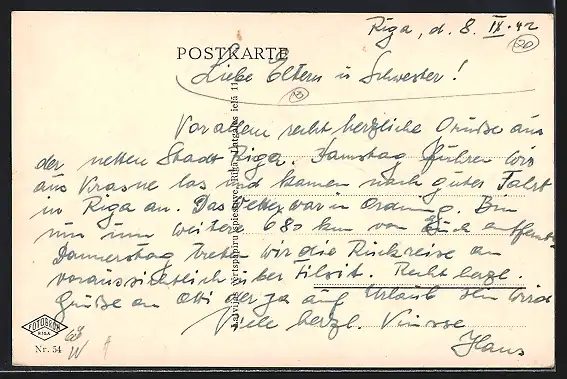 Riga, d. 8. IX. 42
20
POSTKARTE
Liebe Eltern u Schwester!
Vor allem recht herzliche Grüße aus
der netten Stadt Riga. Samstag fuhren wir
aus Krasne los und kamen nach guter Fahrt
in Riga an. Das Wetter war in Ordnung. Bin
nun um weitere 680 km von Euch entfernt.
Donnerstag treten wir die Rückreise an
voraussichtlich über Tilsit. Recht herzl.
Grüße an Otti der ja auf Urlaub sein wird
Viele herzl. Küsse
Hans
Latvijas vērtspapīru spiestuve, Rīgā, Latgales ielā 11
FOTOBROM
RIGA
Nr. 54